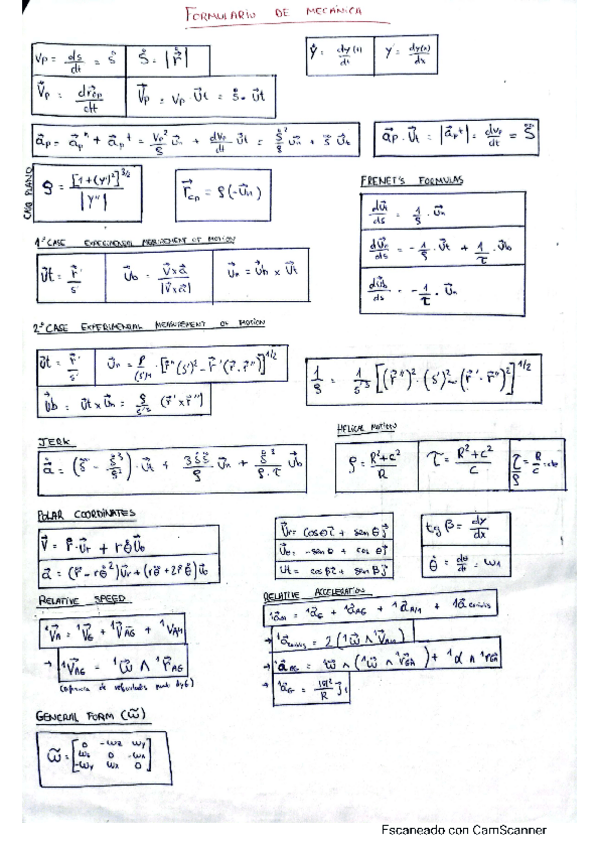 FORMULARIO DE MECÁNICA
Vp = ds/dt = ṡ
ṡ = |ṙ|
Ẏ = dy(t)/dt
Y' = dy(x)/dx
V⃗p = dr⃗op/dt
V⃗p = Vp · u⃗t = ṡ · u⃗t
a⃗p = a⃗pⁿ + a⃗pᵗ = Vp²/ρ u⃗n + dVp/dt u⃗t = ṡ²/ρ u⃗n + s̈ u⃗t
a⃗p · u⃗t = |a⃗pᵗ| = dvp/dt = s̈
CASO PLANO
ρ = [1+(Y')²]^3/2 / |Y''|
r⃗cp = ρ(-u⃗n)
FRENET'S FORMULAS
du⃗t/ds = 1/ρ · u⃗n
du⃗n/ds = -1/ρ · u⃗t + 1/τ u⃗b
du⃗b/ds = -1/τ · u⃗n
1ª CASE EXPERIMENTAL MEASUREMENT OF MOTION
u⃗t = r⃗'/s'
u⃗b = v⃗×a⃗/|v⃗×a⃗|
u⃗n = u⃗b × u⃗t
2ª CASE EXPERIMENTAL MEASUREMENT OF MOTION
u⃗t = r⃗'/s'
u⃗b = u⃗t × u⃗n = ρ/s'³ (r⃗' × r⃗'')
1/ρ = 1/s'³ [(r⃗'')² · (s')² - (r⃗' · r⃗'')²]^1/2
JERK
HELICAL MOTION
ρ = R²+c²/R
τ = R²+c²/c
τ/ρ = R/c
POLAR COORDINATES
V⃗ = ṙ · u⃗r + rθ̇ u⃗θ
a⃗ = (r̈ - rθ̇²) u⃗r + (rθ̈ + 2ṙθ̇) u⃗θ
u⃗r = cos θ i⃗ + sen θ j⃗
u⃗θ = -sen θ + cos θ j⃗
ut = cos β i⃗ + sen β j⃗
tg β = dy/dx
θ̇ = dθ/dt = ω1
RELATIVE SPEED
¹V⃗A = ¹V⃗G + ¹V⃗AG + ¹VAM
→ ¹V⃗AG = ¹ω⃗ ∧ ¹r⃗AG
RELATIVE ACCELERATION
→ ¹a⃗coriolis = 2(¹ω⃗ ∧ ¹V⃗AM)
→ ¹a⃗AG = ¹ω⃗ ∧ (¹ω⃗ ∧ ¹r⃗GA) + ¹α ∧ ¹rGA
GENERAL FORM (ω̃)
ω̃ = [0 -ωz ωy
ωz 0 -ωx
-ωy ωx 0]
Escaneado con CamScanner